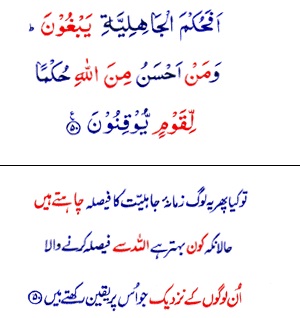 اَفَحُكْمَ الْجَاهِلِيَّةِ يَبْغُوْنَ ؕ
وَمَنْ اَحْسَنُ مِنَ اللّٰهِ حُكْمًا
لِّقَوْمٍ يُّوْقِنُوْنَ ﴿۵۰﴾ ع
تو کیا پھر یہ لوگ زمانۂ جاہلیت کا فیصلہ چاہتے ہیں
حالانکہ کون بہتر ہے اللہ سے فیصلہ کرنے والا
اُن لوگوں کے نزدیک جو اُس پر یقین رکھتے ہیں ﴿۵۰﴾